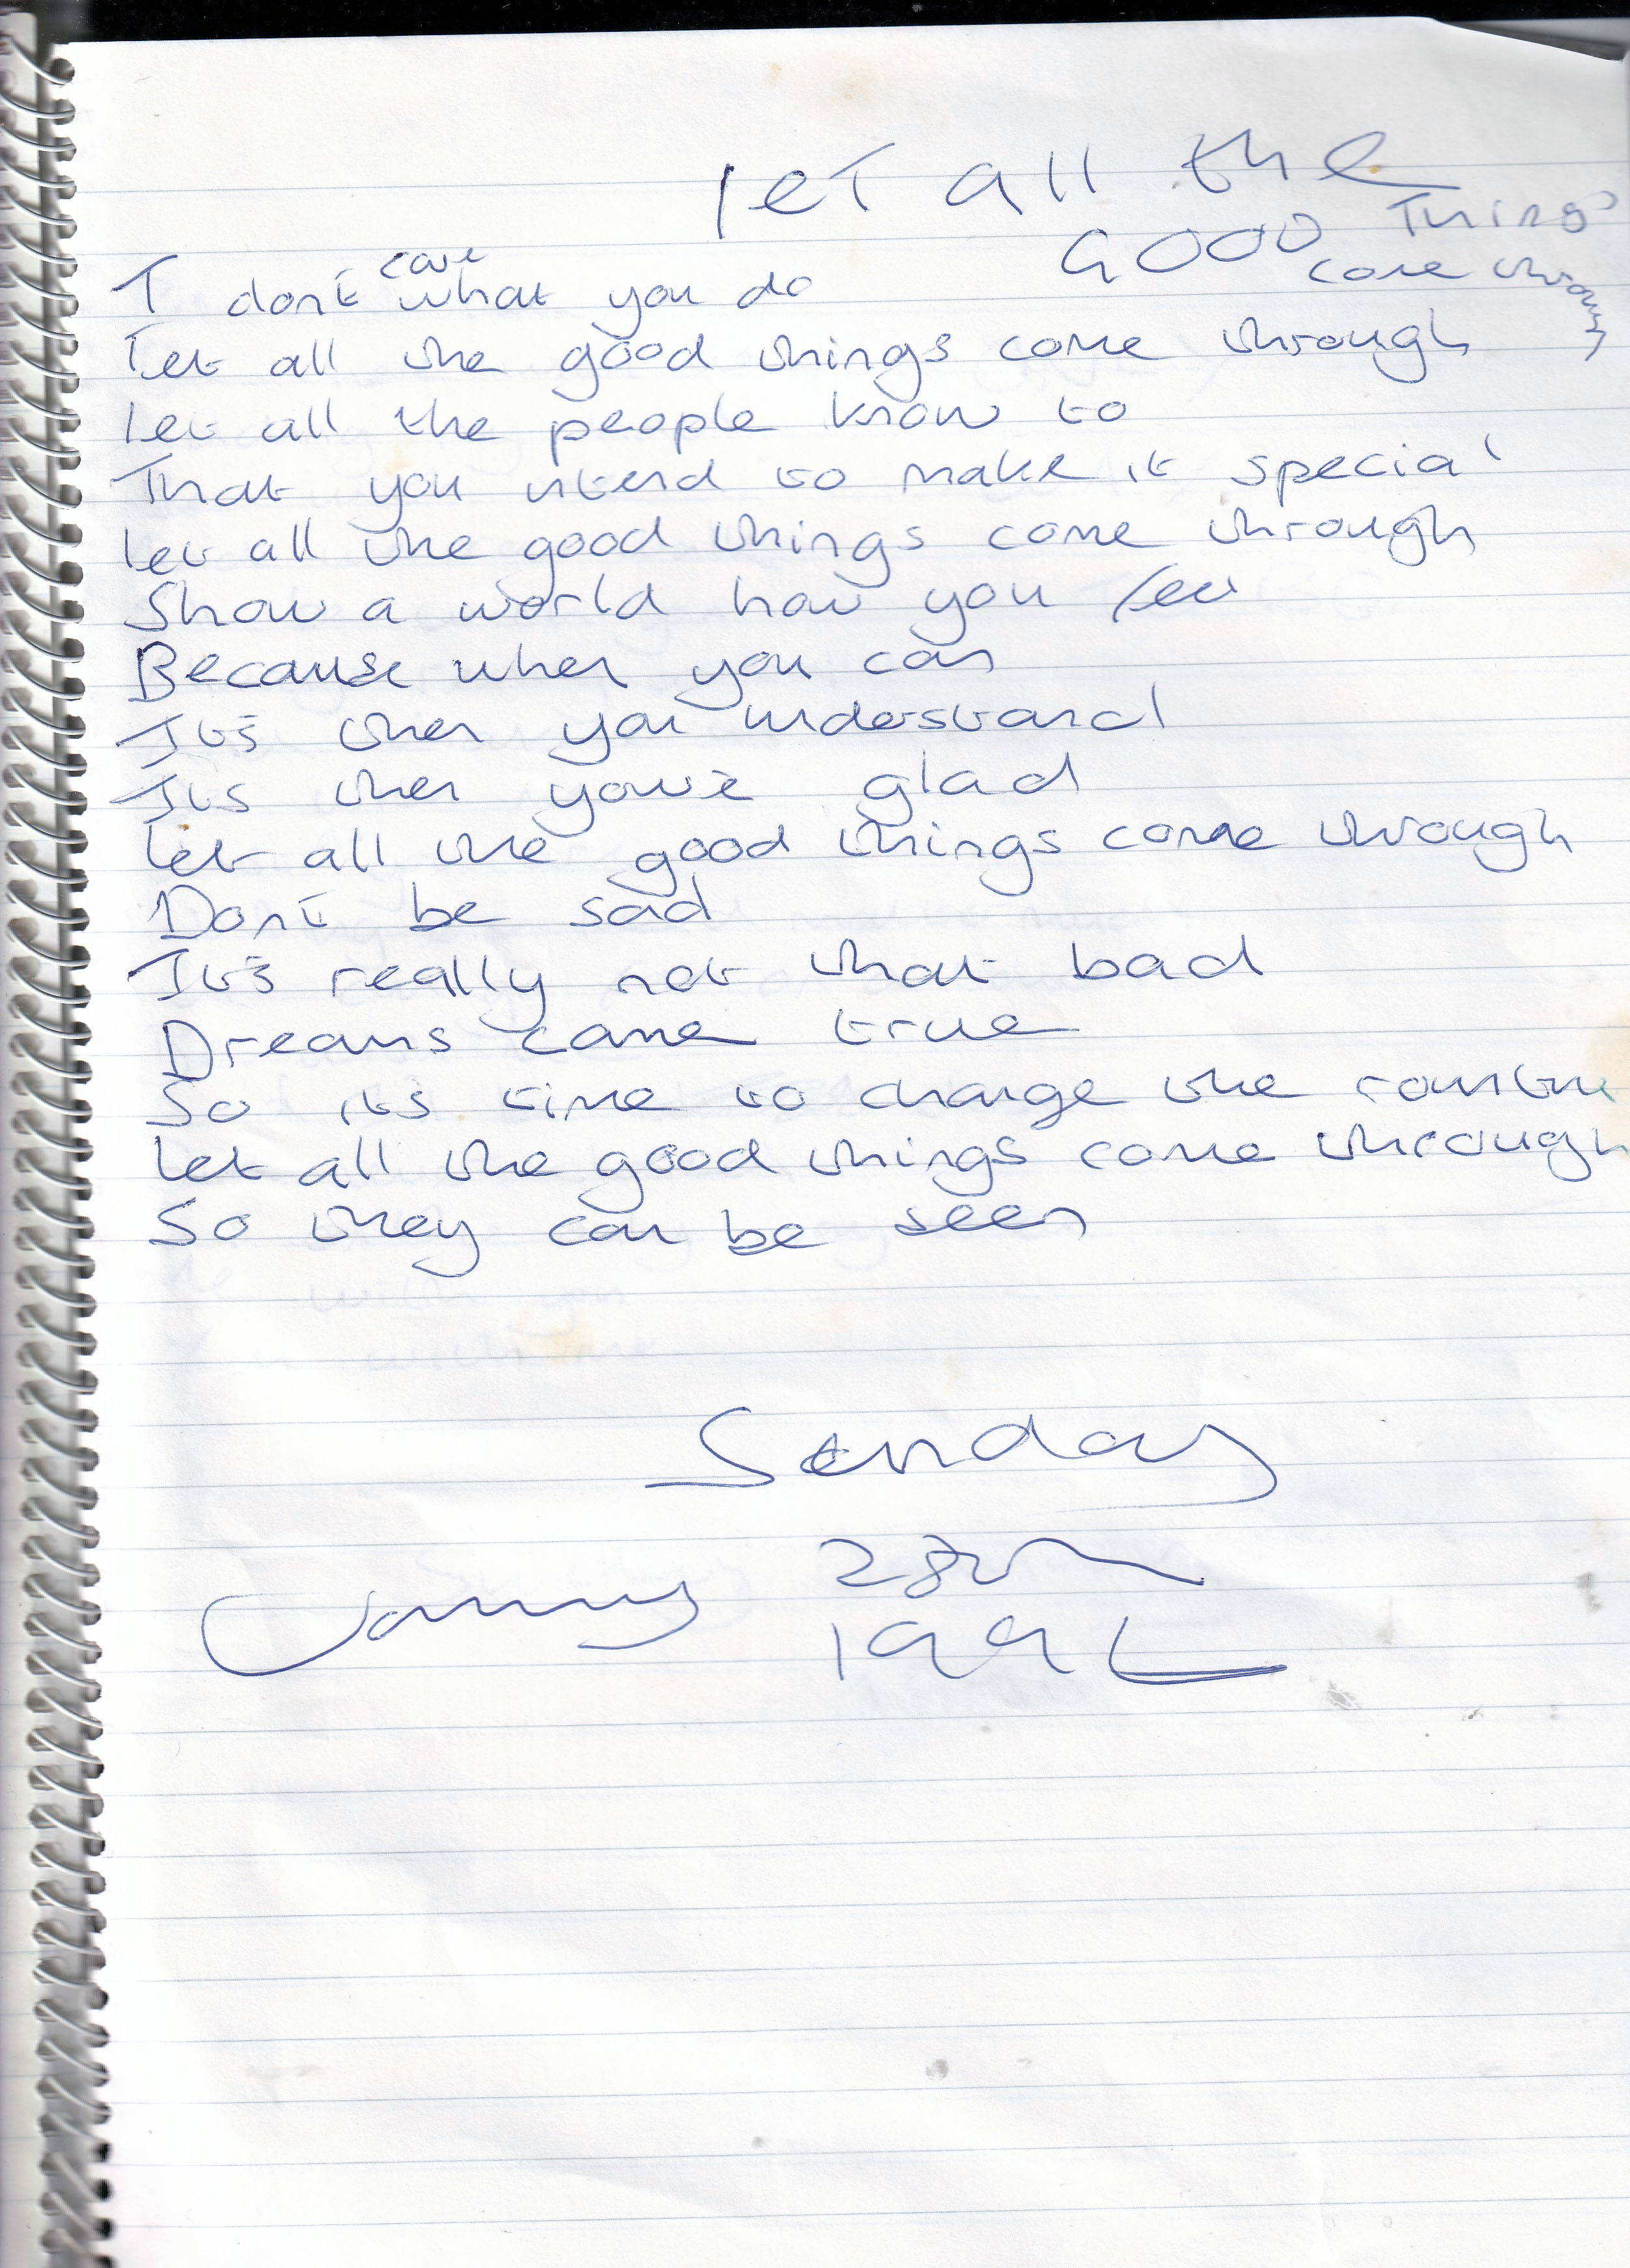 let all the
GOOD Things
come through
care
I don't what you do
let all the good things come through
let all the people know to
That you intend to make it special
let all the good things come through
Show a world how you feel
Because when you can
It's then you understand
Its then you're glad
let all the good things come through
Don't be sad
It's really not that bad
Dreams come true
So it's time to change the routine
let all the good things come through
So they can be seen
Sunday
28th
199